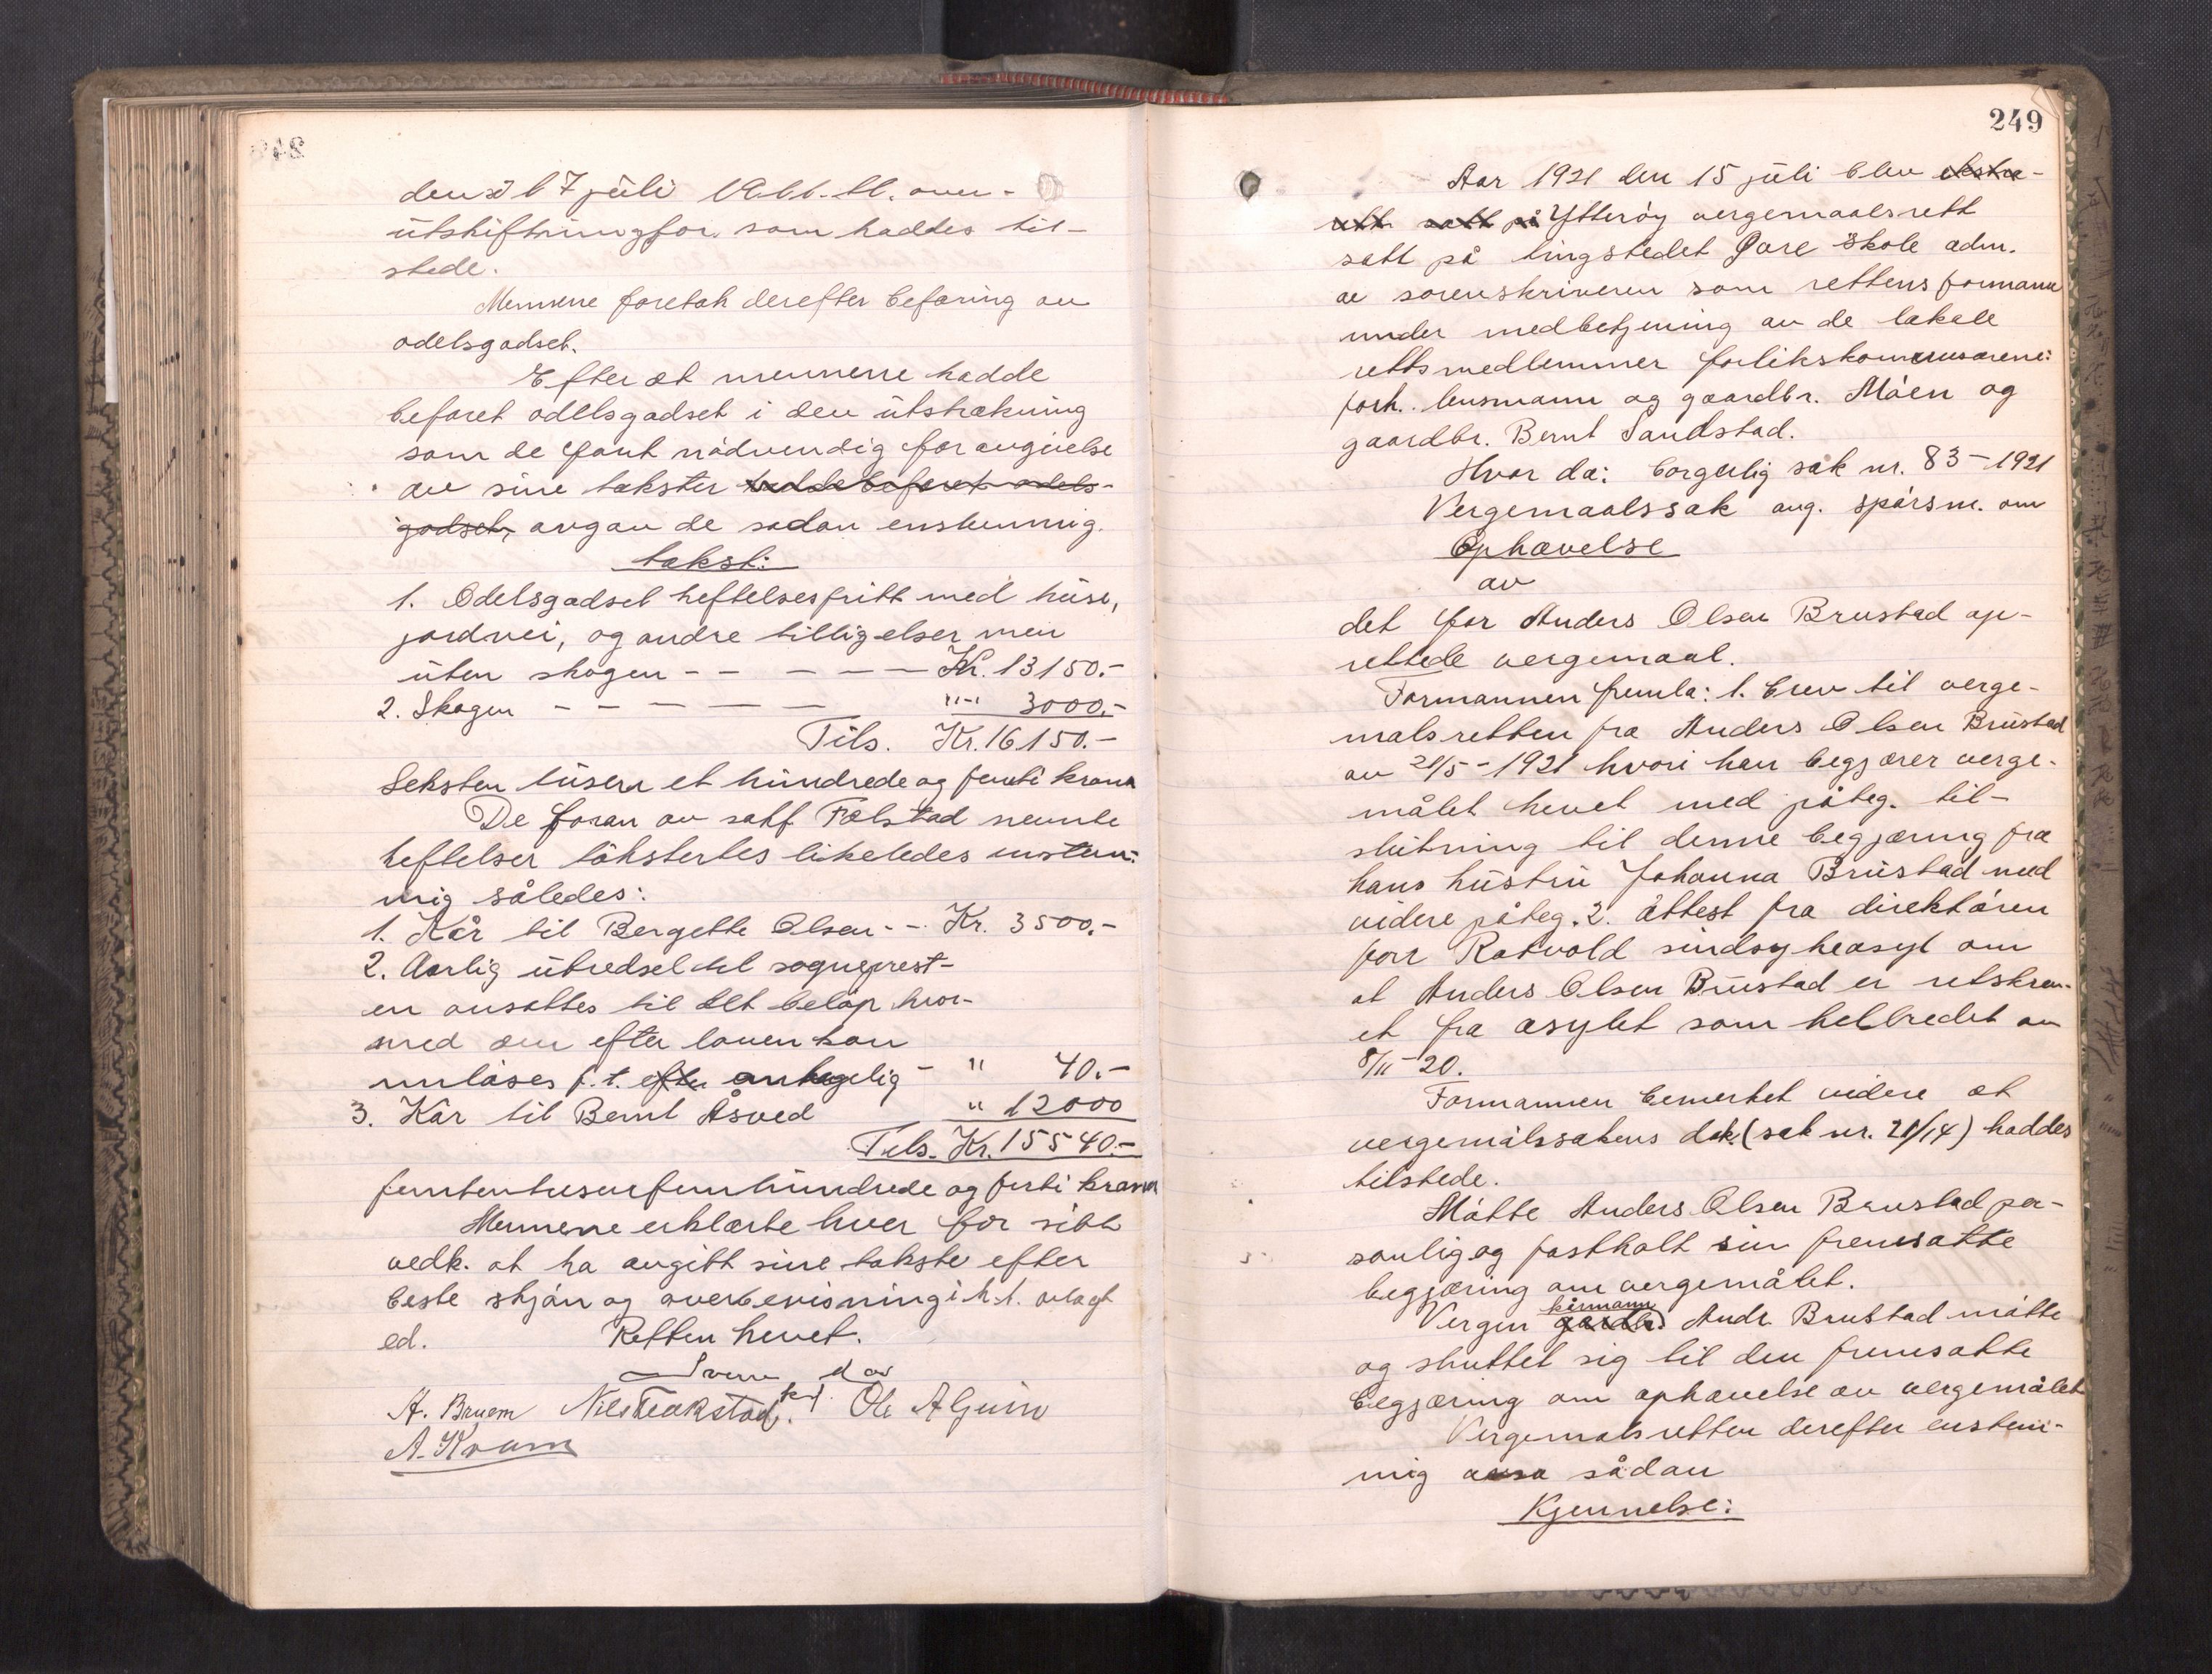 den 7 juli over-
utskiftningsfor. som haddes til-
stede.
Mennene foretok derefter befaring av
odelsgodset.
Efter at mennene hadde
befaret odelsgodset i den utstrækning
som de fant nødvendig for avgivelse
av sine takster hadde befaret odels-
godset, avgav de sådan enstemmig
takst:
1. Odelsgodset heftelsesfritt med huse,
jordvei, og andre tilligelser men
uten skogen - - - - - Kr. 13150.-
2. Skogen - - - - - - "-" 3000.-
Tils. Kr. 16150.-
Seksten tusen et hundrede og femti kroner
De foran av sakf. Følstad nevnte
heftelser takstertes likeledes enstem-
mig således:
1. Kår til Bergette Olsen - - Kr. 3500.-
2. Aarlig utredsel til sogneprest-
en ansattes til det beløp hvor-
med den efter loven kan
innløses f.t. efter antagelig - " 40.-
3. Kår til Bernt Åsved " 12000
Tils. Kr. 15540.-
femtentusenfemhundrede og førti kroner
Mennene erklærte hver for sitt
vedk. at ha avgitt sine takster efter
beste skjøn og overbevisning i h.t. avlagt
ed. Retten hevet.
A. Bruem Ole Aljuin
A. Kvam
249
Aar 1921 den 15 juli blev ekstra-
rett satt på Ytterøy vergemaalsrett
satt på tingstedet Jare skole adm.
av sorenskriveren som rettens formann
under medbetjening av de lokale
rettsmedlemmer forlikskommissærene:
forh. lensmann og gaardbr. Moen og
gaardbr. Bernt Sandstad.
Hvor da: borgerlig sak nr. 83-1921
Vergemaalssak ang. spørsm. om
Ophævelse
av
det for Anders Olsen Brustad op-
rettede vergemaal.
Formannen fremla: 1. brev til verge-
malsretten fra Anders Olsen Brustad
av 21/5-1921 hvori han begjærer verge-
målet hevet med påteg. til-
slutning til denne begjæring fra
hans hustru Johanna Brustad med
videre påteg. 2. attest fra direktøren
for Rotvold sindsykeasyl om
at Anders Olsen Brustad er utskrev-
et fra asylet som helbredet av
8/11-20.
Formannen bemerket videre at
vergemålssakens dok. (sak nr. 21/14) haddes
tilstede.
Møtte Anders Olsen Brustad per-
sonlig og fastholt sin fremsatte
begjæring om vergemålet.
kårmann
Vergen gårdbr. Andr. Brustad møtte
og sluttet sig til den fremsatte
begjæring om ophævelse av vergemålet
Vergemålsretten derefter enstem-
mig avsa sådan
Kjennelse: